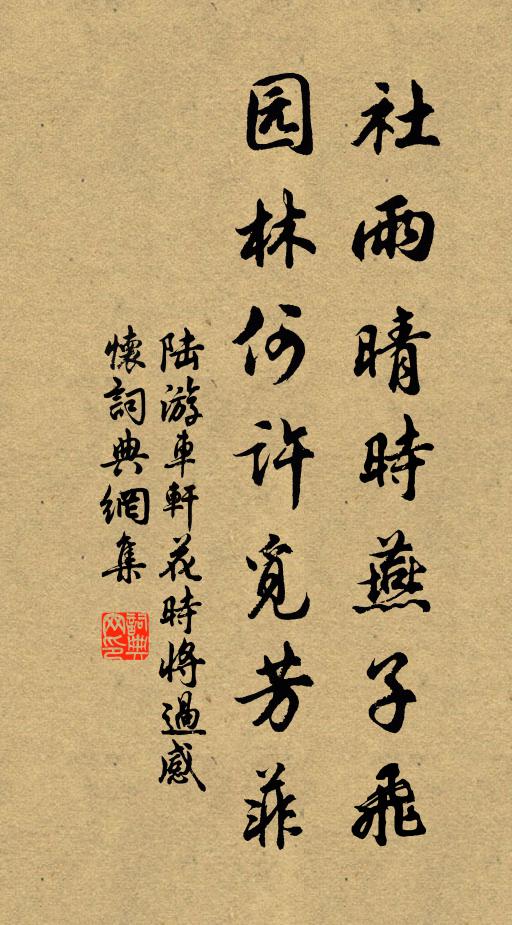 社雨晴時燕子飛
园林何許覓芳菲
陆游車軒花時将過感
懷詞典網集
詞典網印